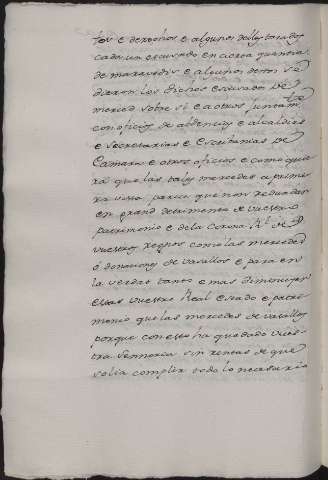 tos e derechos e algunos dellos tasados
cada un escusado en cierta quantia
de maravedis e algunos detos se
dieron los dichos escusados de
merced sobre si e a otros juntam.te
con oficios de alcaldias
e secretarias e Escribanias de
Camara e otros oficios e como quie
ra que las tales mercedes a prime
ra vista parece que non redundan
en grand detrimento de vuestro
patrimonio e de la Corona R.l de
vuestros regnos como las mercedes
ó donaciones de vasallos e para en
la verdad tanto e mas diminuyen
estas vuestro Real estado e patri
monio que las mercedes de vasallos
porque con esto ha quedado vues
tra Sennoria sin rentas de que
solia complir todo lo necesario